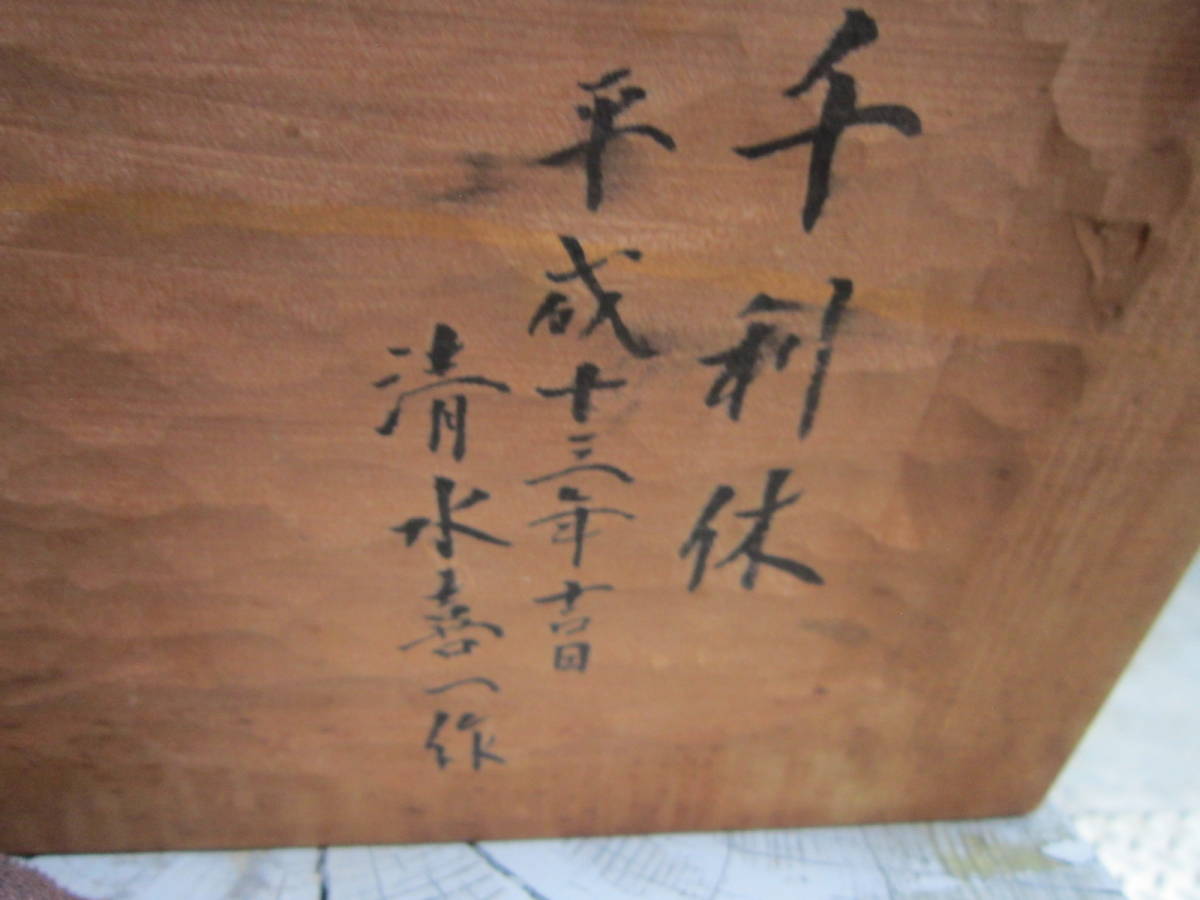 千利休
平成十三年吉日
清水喜一作